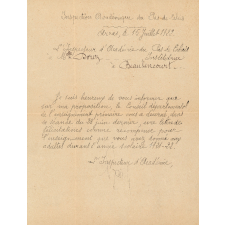 Inspection Académique du Pas de Calais
Arras, le 16 Juillet 1912
L'Inspecteur d'Académie du Pas de Calais
à Mlle Institutrice
à Beaurencourt
Je suis heureux de vous informer que
sur ma proposition, le Conseil départemental
de l'enseignement primaire vous a décerné dans
sa séance du 28 juin dernier, une lettre de
félicitations comme récompense pour
l'enseignement que vous avez donné aux
adultes durant l'année scolaire 1911-12.
L'Inspecteur d'Académie